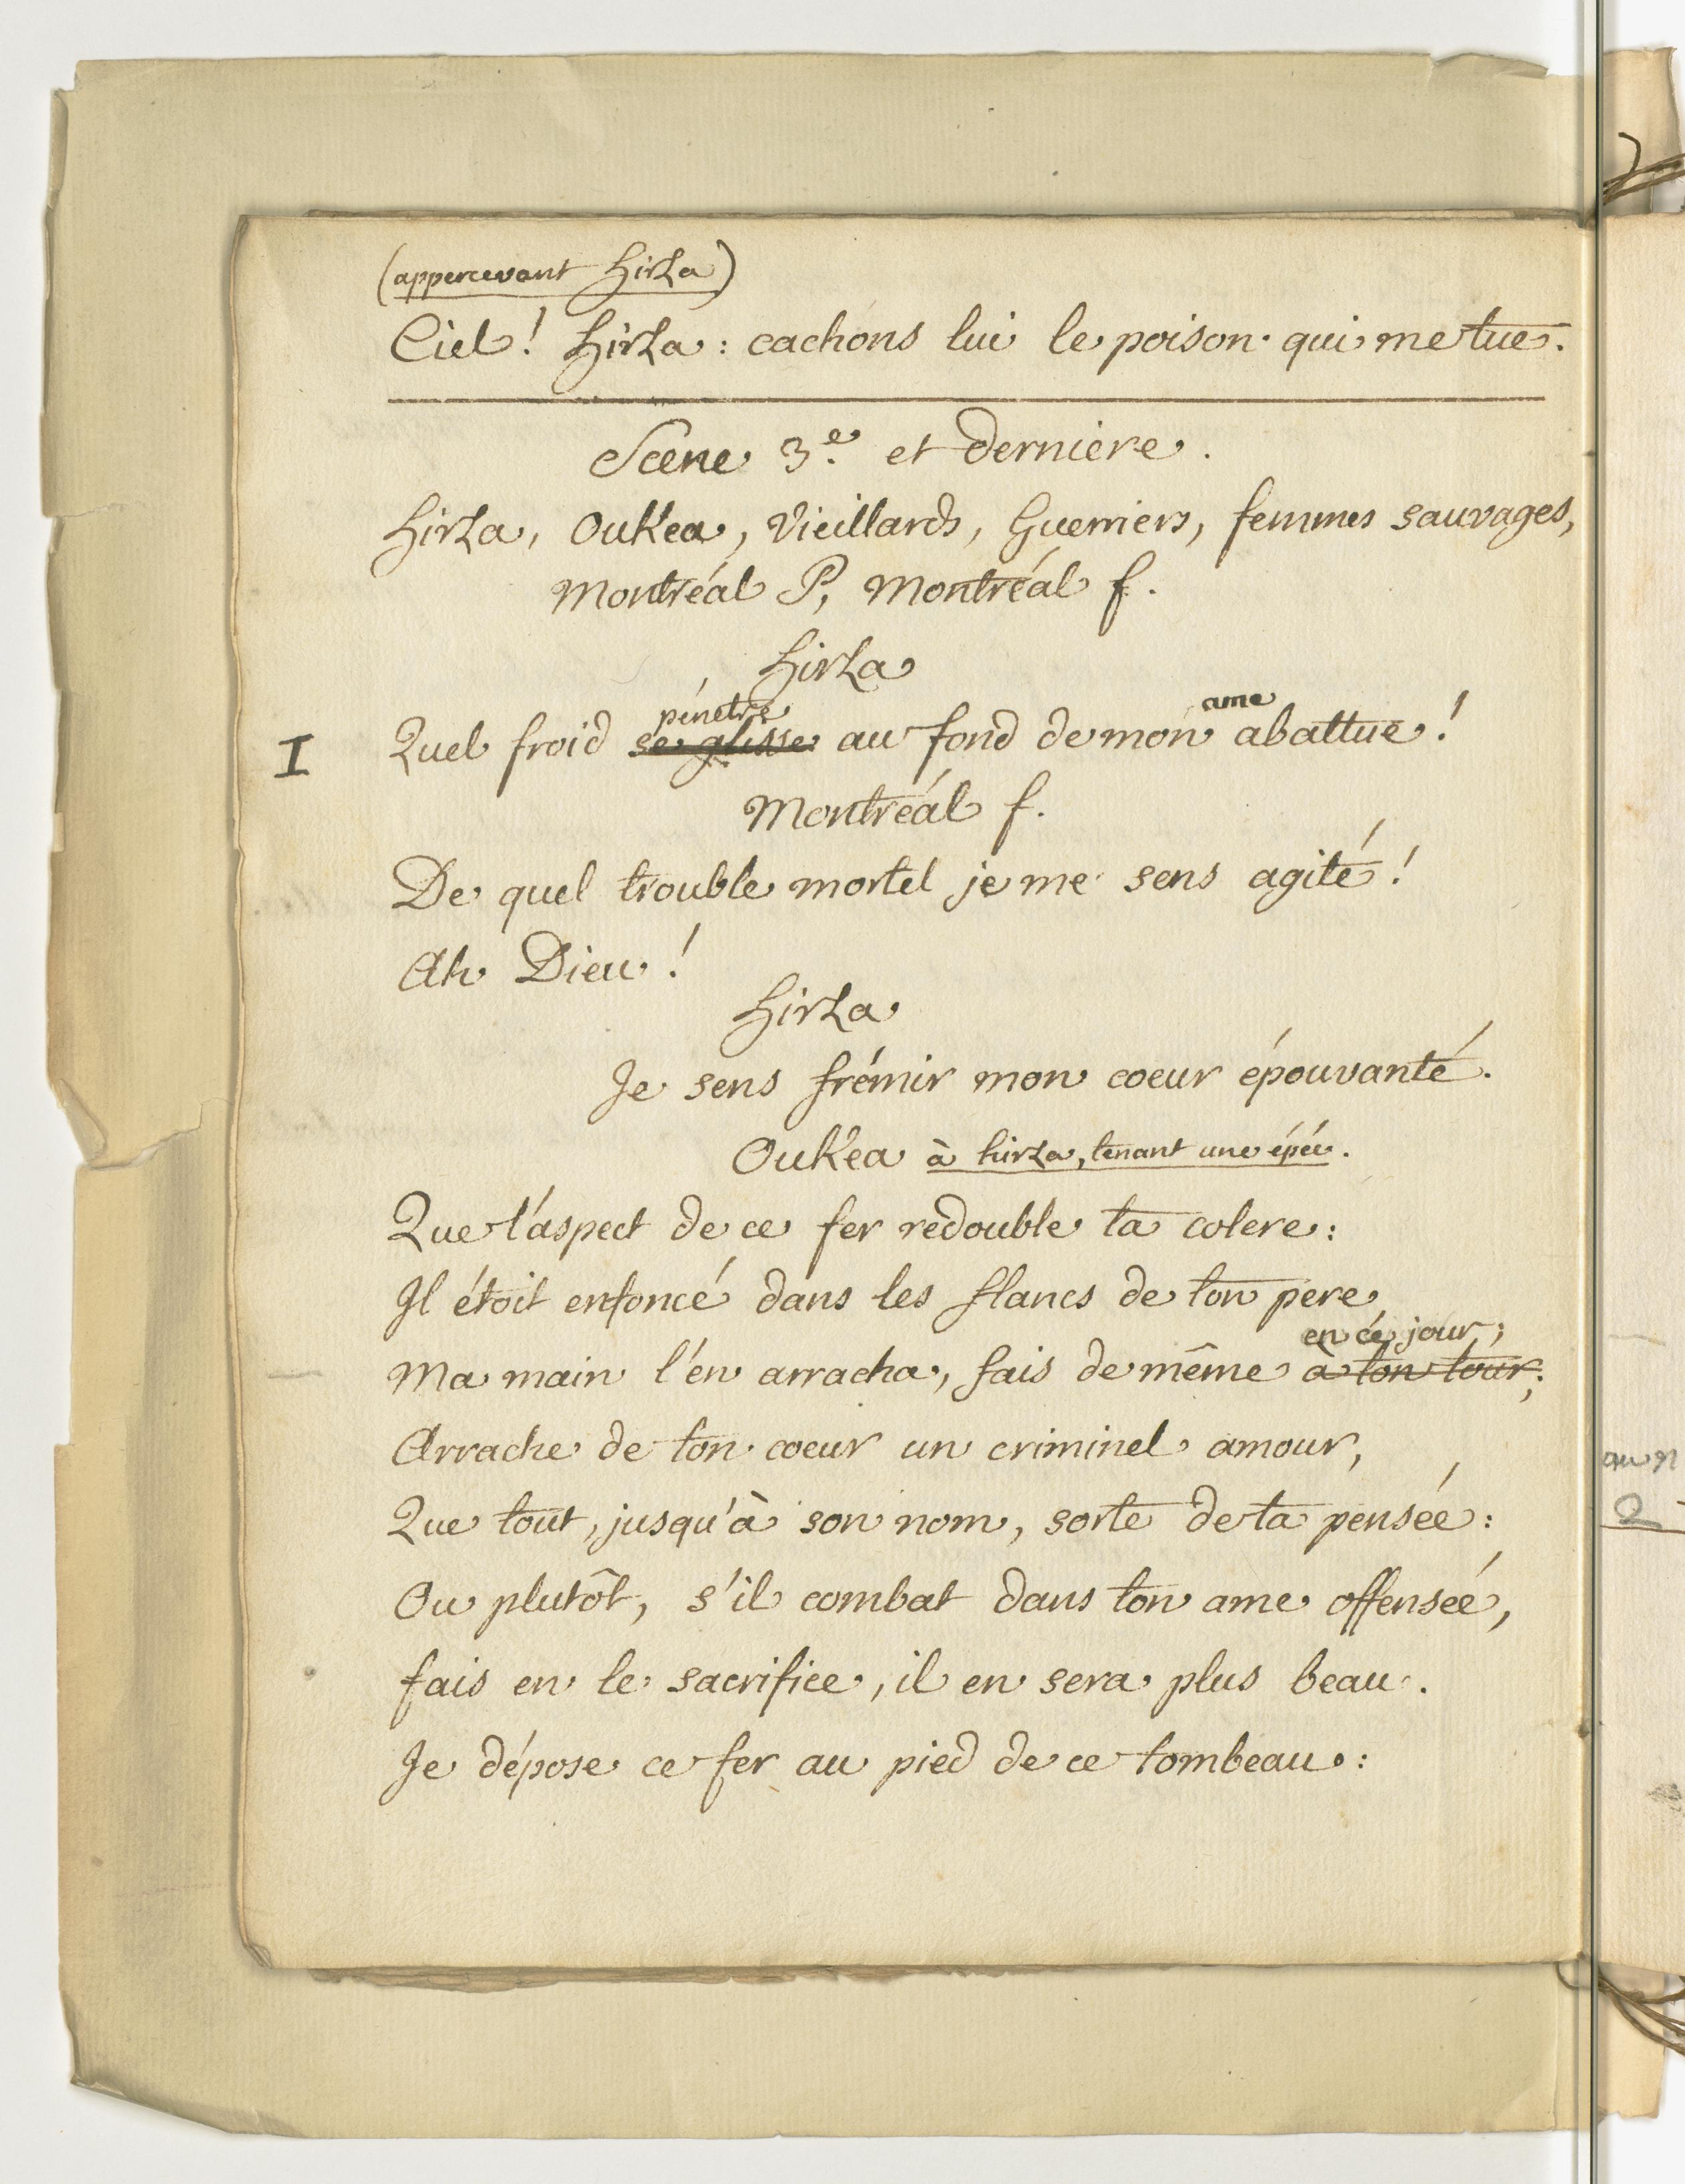 (appercevant hirza)
Ciel! hirza: cachons lui le poison qui me tue.
Scene 3.e et derniere.
hirza, Oukéa, Vieillards, Guerriers, femmes sauvages,
Montréal P, Montréal f.
hirza
pénetre ame
I Quel froid se glisse au fond de mon abattue!
Montréal f.
De quel trouble mortel je me sens agité!
Ah Dieu!
hirza
Je sens frémir mon coeur épouvanté.
Oukéa à hirza, tenant une épée.
Que l'aspect de ce fer redouble ta colere:
Il étoit enfoncé dans les flancs de ton pere,
en ce jour;
Ma main l'en arracha, fais de même à ton tour;
Arrache de ton coeur un criminel amour,
Que tout, jusqu'à son nom, sorte de ta pensée:
Ou plutôt, s'il combat dans ton ame offensée,
fais en le sacrifice, il en sera plus beau.
Je dépose ce fer au pied de ce tombeau: